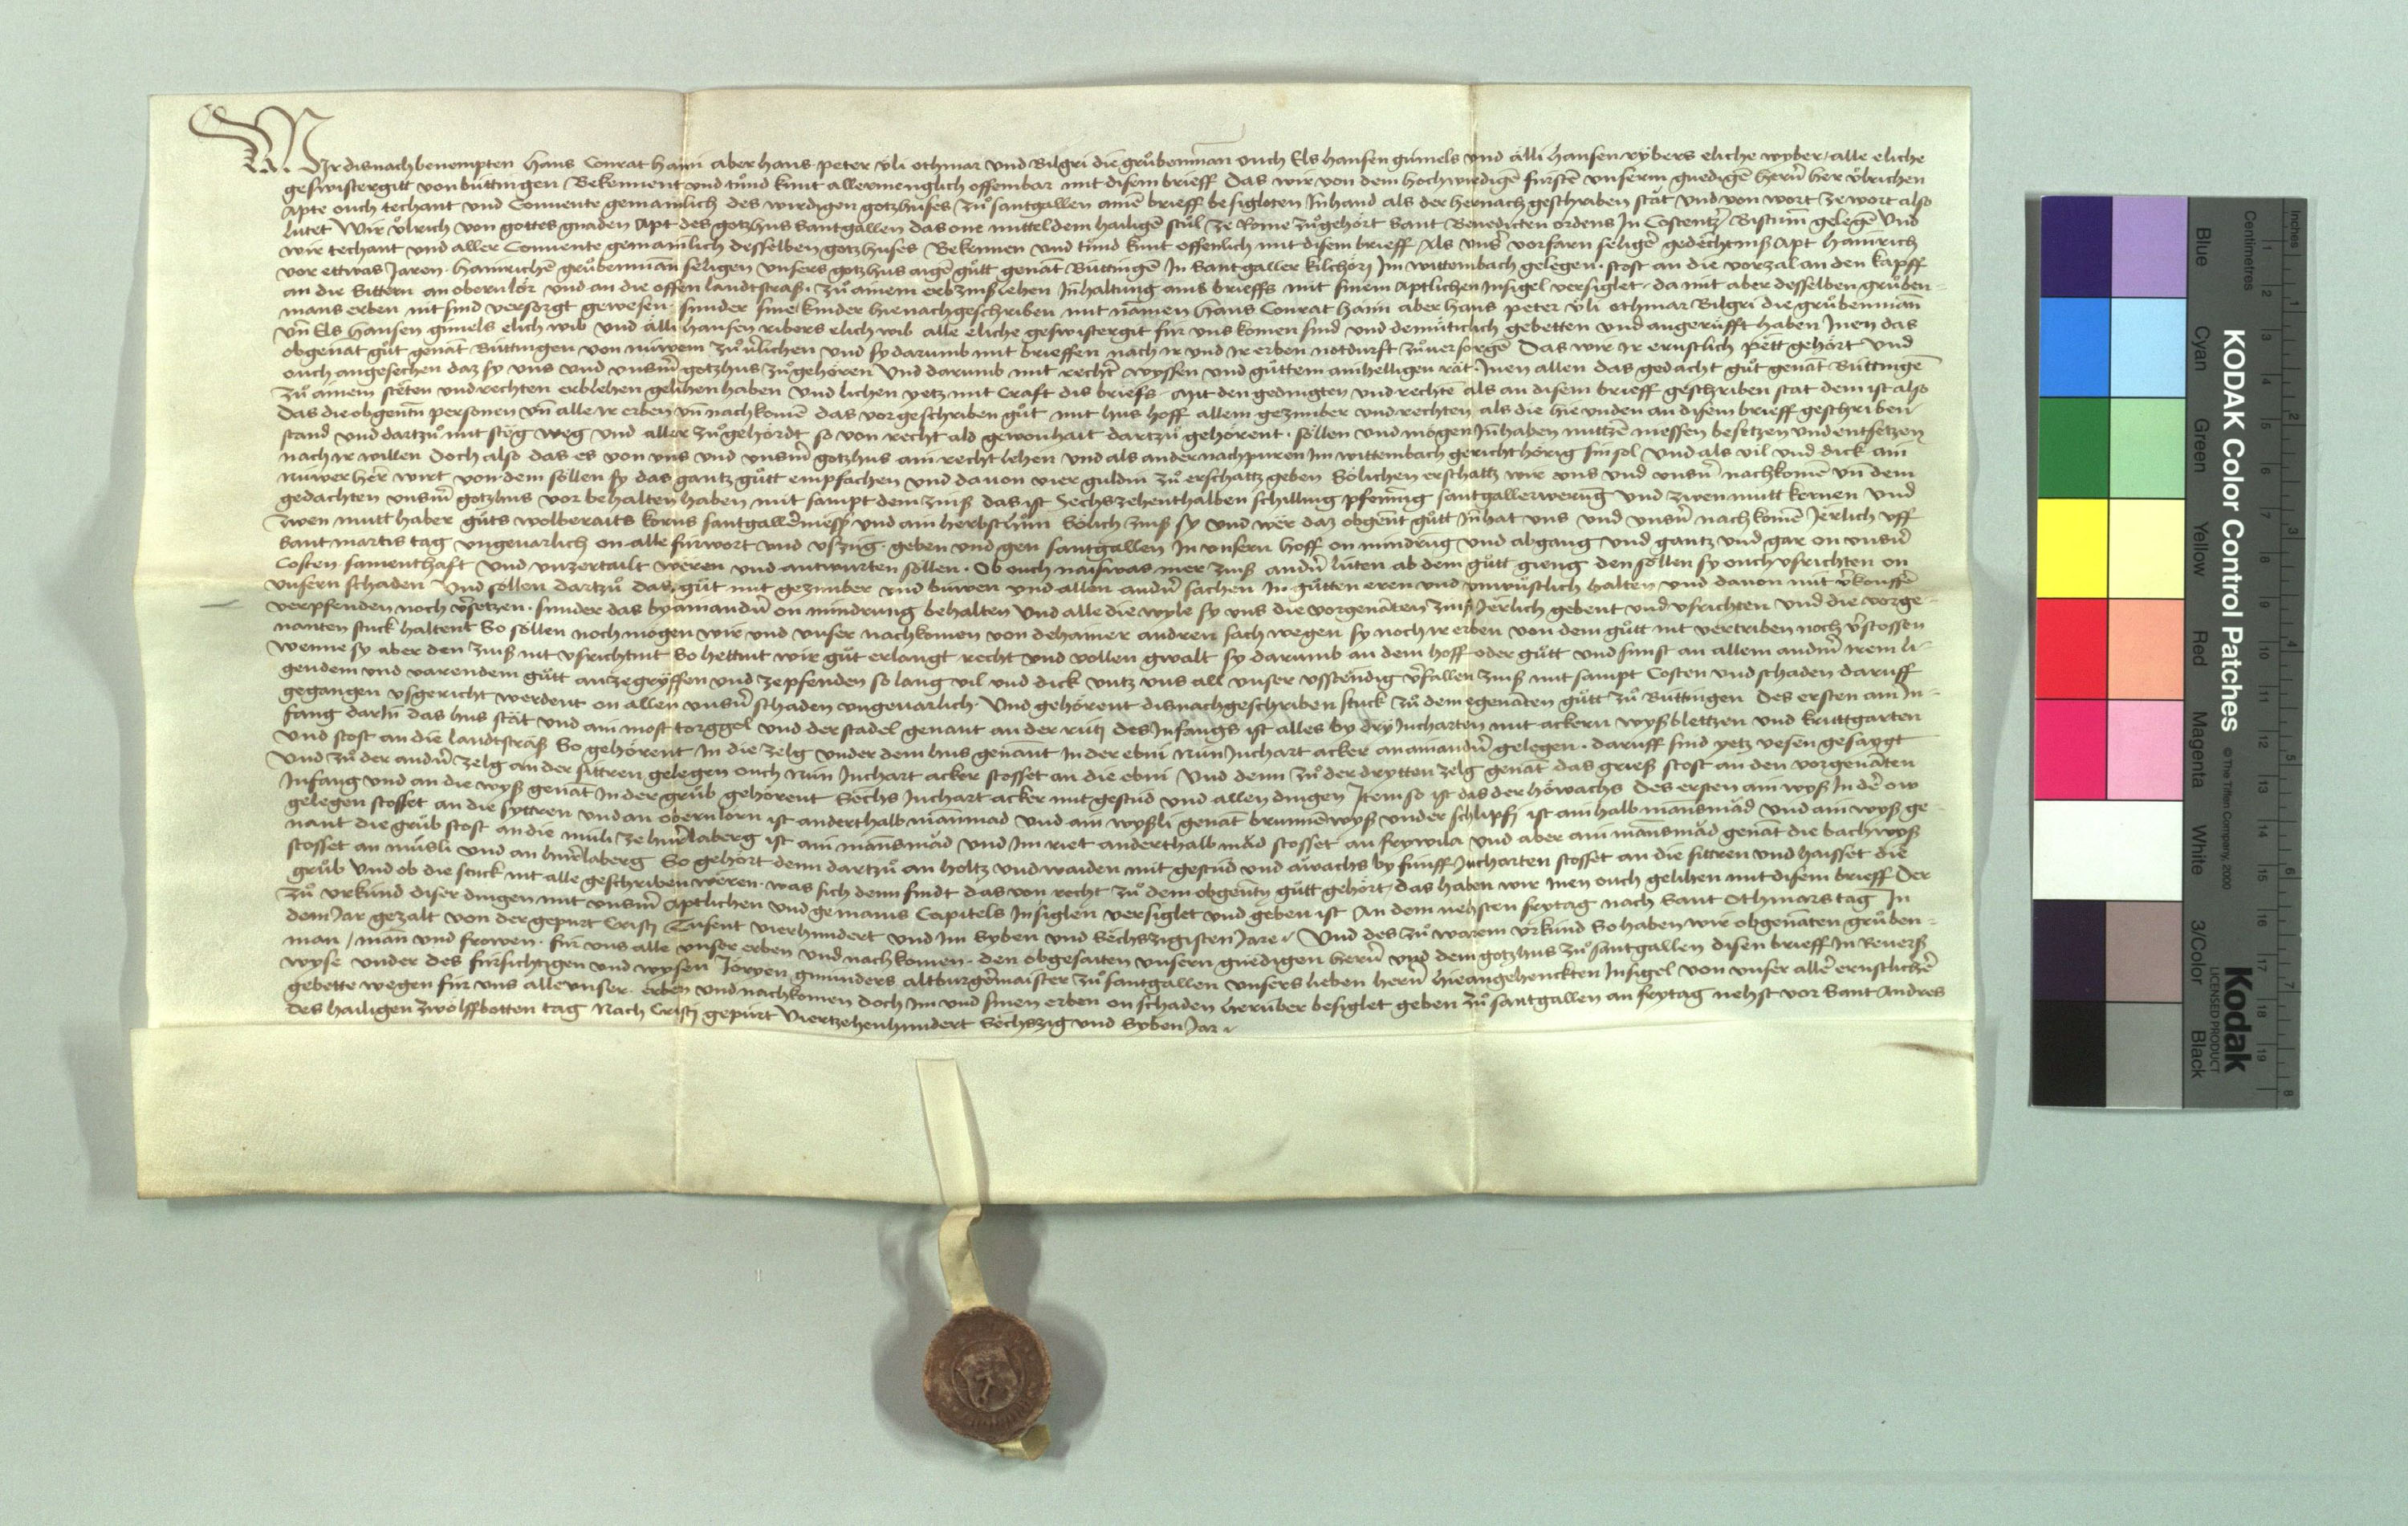 Wir disnachbenempten Hans Conrat Haini aber hans peter ůli othmar und Bilgri die grůbenman̄ ouch Els hansen gimels und älli hansen rybers eliche wyber / alle eliche
geswistergitt von büttingen Bekennent und tůnd kunt allermenglich offembar mit disem brieff Das wir von dem hochwirdigē fürstē unserm gnedigē herrn̄ her ůlrichen
Apte ouch techant und Convente gemainlich des wirdigen gotzhuses zů santgallen ainē brieff besigloten Inhand als der hernach geschriben stät und von wort ze wort also
lutet Wir ůlrich von gottes gnaden Apt des gotzhus Santgallen das one mittel dem hailigē stůl ze Rome zůgehört Sant Benedicten ordens In Costentz̄ Bistum̄ gelegē Und
wir techant und aller Convente gemainlich desselben gotzhuses Bekennen und tůnd kunt offenlich mit disem brieff Als uns̄er vorfarn säligē gedēchtnuß Apt Hainrich
vor ettwas Jaren Hainrichē grůbenman̄ säligen unsers gotzhus aigē gůtt genāt Büttingē In Santgaller kilchöri Im wittembach gelegen stost an die vorzal an den kapff
an die Sittern an obern lör und an die offen landtstraß zů ainem erbzinßlehen Inhaltung ains brieffs mit sinem aptlichen Insigel versiglet da mit aber desselben grůben-
mans erben nit sind versorgt gewesen sunder sine kinder hienachgeschriben mit namen Hans Conrat Haini aber hans peter ůli othmar Bilgri die grůbenman̄
un̄ Els Hansen gimels elich wib und älli hansen ribers elich wib alle eliche geswistergit für uns komen sind und demüticlich gebetten und angerüfft haben Inen das
obgenāt gůt genāt Büttingen von nüwem zů v̄lichen und sy darumb mit brieffen nach ir und ir erben notdurft zů versorgē Das wir ir ernstlich pett gehört und
ouch angesechen daz sy uns und unserm̄ gotzhus zůgehören Und darumb mit rechtē wyssen und gůttem ainhelligen rät Inen allen das gedacht gůt genāt Büttingē
zů ainem stēten und rechten erblehen gelihen haben und lichen yetz mit Craft dis briefs Mit den gedingten und rechtē als an disem brieff geschriben stat dem ist also
Das die obgentn̄ personen un̄ alle ir erben un̄ nachkomē das vorgeschriben gůt mit hus hoff allem gezimber und rechten als die hie unden an disem brieff geschriben
stand und dartzů mit stēg weg und aller zůgehördt so von recht ald gewonhait dartzů gehörent söllen und mögen Inhaben nutzē niessen besetzen und entsetzen
nach ir willen Doch also das es von uns und unserm̄ gotzhus ain recht lehen und als ander nachpuren Im wittembach gericht hörig sin sol Und als vil und dick ain
nüwer herr wirt von dem söllen sy das gantz gůtt empfachen und davon vier guldin zů erschatz geben Sölichen erschattz wir uns und unsern̄ nachkomē un̄ dem
gedachten unserm̄ gotzhus vor behalten haben mit sampt dem zinß das ist Sechszehenthalben schilling pfennig santgaller werūg und zwen mutt kernen und
zwen mutt haber gůts wolberaits korns santgaller meß und ain herbsthůn Sölich zinß sy und wer daz obgent gůtt Inhat uns und unsern̄ nachkomē Jerlich uff
Sant martis tag ungevarlich on alle fürwort und uszüg geben und gen santgallen In unsern hoff on mindrūg und abgang und gantz und gar on unsern̄
Costen samenthaft und unzertailt weren und antwurten söllen Ob ouch naiswas mer zinß andern̄ lüten ab dem gůtt gieng den söllen sy ouch usrichten on
unsern schaden Und söllen dartzů das gůt mit gezimber und buwen und allen andern̄ sachen In gůtten eren und unwüstlich halten und davon nit v̄kouffē
verpfenden noch v̄setzen sunder das by ainandern̄ on mindrung behalten Und alle die wyle sy uns die vorgenāten zinß Jerlich gebent und usrichten und die vorge-
nanten stuck haltent So söllen noch mögen wir und unser nachkomen von dehainer andren sach wegen sy noch ir erben von dem gůtt nit vertriben noch v̄stossen
Wenne sy aber den zinß nit usrichtint So hettint wir gůt erlangt recht und vollen gwalt sy darumb an dem hoff oder gůtt und sunst an allem anderm̄ irem li-
gendem und varendem gůtt anzegryffen und zepfenden so lang vil und dick untz uns all unser usstēndig v̄fallen zinß mit sampt Costen und schaden daruff
gegangen usgericht werdent on allen unsern̄ schaden ungevarlich Und gehörent disnachgeschriben stuck zů dem egenāten gůtt zů Büttingen Des ersten ain In-
fang darIn̄ das hus stät und ain most torggel und der stadel genant an der rüti des Infangs ist alles by dry Jucharten mit ackern wyßblettzen und kruttgarten
und stost an die landtsträß So gehörent In die zelg under dem hus genant In der ebni nün Juchart acker an ainandern̄ gelegen daruff sind yetz vesen gesaygt
Und zů der andern̄ zelg an der sittren gelegen ouch nün Juchart acker stosset an die ebni Und denn zů der drytten zelg genāt das grieß stost an den vorgenāten
Infang und an die wyß genāt In der grůb gehörent Sechs Juchart acker mit gestüd und allen dingen Item so ist das der höwachs Des ersten ain wyß In der ow
gelegen stosset an die syttren und an obern lörn ist anderthalb mannmad und ain wyßli genāt brunnēwyß under schlipfi ist ain halb mansmäd und ain wyß ge-
nant die grůb stost an die müli ze hun̄laberg ist ain mansmäd und Im riet anderthalb mäd stosset an frywila und aber ain mansmäd genāt die bachwyß
stosset an müsli und an hun̄laberg So gehört denn dartzů an holtz und waiden mit gestüd und äwachs by fünff Jucharten stosset an die sittren und haisset die
grůb Und ob die stuck nit alle geschriben wēren was sich denn findt das von recht zů dem obgentn̄ gůtt gehört das haben wir Inen ouch gelihen mit disem brieff Der
zů urkünd diser dingen mit unserm̄ Aptlichen und gemains Capitels Insiglen versiglet und geben ist An dem nehsten frytag nach Sant Othmars tag In
dem Jar gezalt von der gepurt Cristi Tusent vierhundert und Im Syben und Sēchszigisten Jare Und des zů warem urkünd So haben wir obgenāten grůben-
man / man̄ und frowen für uns alle unser erben und nachkomen den obgesaiten unsern gnedigen herrn̄ und dem gotzhus zů santgallen disen brieff In Reverß
wyse under des fürsichtigen und wysen Jöryen gmünders altburgermaister zů santgallen unsers lieben herrn̄ hieangehenckten Insigel von unser aller ernstlichē
gebette wegen für uns alle unser erben und nachkomen doch Im und sinen erben on schaden herüber besiglet geben zů santgallen an frytag nehst vor Sant Andres
des hailigen zwölffbotten tag Nach Cristi gepürt Viertzehenhundert Sēchszig und Syben Jar
KODAK Color Control Patches
© The Tiffen Company, 2000
Kodak
LICENSED PRODUCT
Centimetres
Inches
Blue Cyan Green Yellow Red Magenta White 3/Color Black
1 2 3 4 5 6 7 8 9 10 11 12 13 14 15 16 17 18 19
1 2 3 4 5 6 7 8